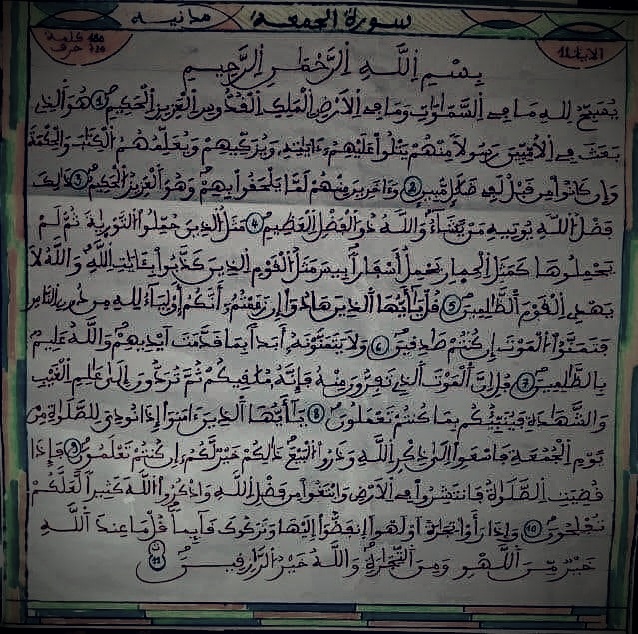 سورة الجمعة مدنية
الاية 11
180 كلمة
720 حرف
بِسْمِ اِللَّهِ اِلرَّحْمَٰنِ اِلرَّحِيمِ
يُسَبِّحُ لِلهِ مَا فِي اِلسَّمَٰوَٰتِ وَمَا فِي اِلَارْضِ اِلْمَلِكِ اِلْقُدُّوسِ اِلْعَزِيزِ اِلْحَكِيمِ 1 هُوَ اَلذِي
بَعَثَ فِي اِلُامِّيِّينَ رَسُولًا مِّنْهُمْ يَتْلُواْ عَلَيْهِمُۥٓ ءَايَٰتِهِۦ وَيُزَكِّيهِمْ وَيُعَلِّمُهُمُ اُلْكِتَٰبَ وَالْحِكْمَةَ
وَإِن كَانُواْ مِن قَبْلُ لَفِي ضَلَٰلٍ مُّبِينٍ 2 وَءَاخَرِينَ مِنْهُمْ لَمَّا يَلْحَقُواْ بِهِمْ وَهُوَ اَلْعَزِيزُ اُلْحَكِيمُ 3 ذَٰلِكَ
فَضْلُ اُللَّهِ يُوتِيهِ مَنْ يَّشَآءُ وَاللَّهُ ذُو اُلْفَضْلِ اِلْعَظِيمِ 4 مَثَلُ اُلذِينَ حُمِّلُواْ اُلتَّوْرَيٰةَ ثُمَّ لَمْ
يَحْمِلُوهَا كَمَثَلِ اِلْحِمَارِ يَحْمِلُ أَسْفَاراً بِيسَ مَثَلُ اُلْقَوْمِ اِلذِينَ كَذَّبُواْ بِـَٔايَٰتِ اِللَّهِ وَاللَّهُ لَا
يَهْدِي اِلْقَوْمَ اَلظَّٰلِمِينَ 5 قُلْ يَٰٓأَيُّهَا اَلذِينَ هَادُوٓاْ إِن زَعَمْتُمُۥٓ أَنَّكُمُۥٓ أَوْلِيَآءُ لِلهِ مِن دُونِ اِلنَّاسِ
فَتَمَنَّوُاْ اُلْمَوْتَ إِن كُنتُمْ صَٰدِقِينَ 6 وَلَا يَتَمَنَّوْنَهُۥٓ أَبَداَۢ بِمَا قَدَّمَتَ اَيْدِيهِمْ وَاللَّهُ عَلِيمُۢ
بِالظَّٰلِمِينَ 7 قُلِ اِنَّ اَلْمَوْتَ اَلذِي تَفِرُّونَ مِنْهُ فَإِنَّهُۥ مُلَٰقِيكُمْ ثُمَّ تُرَدُّونَ إِلَىٰ عَٰلِمِ اِلْغَيْبِ
وَالشَّهَٰدَةِ فَيُنَبِّئُكُم بِمَا كُنتُمْ تَعْمَلُونَ 8 يَٰٓأَيُّهَا اَلذِينَ ءَامَنُوٓاْ إِذَا نُودِيَ لِلصَّلَوٰةِ مِنْ
يَّوْمِ اِلْجُمُعَةِ فَاسْعَوِاْ اِلَىٰ ذِكْرِ اِللَّهِ وَذَرُواْ اُلْبَيْعَ ذَٰلِكُمْ خَيْرٌ لَّكُمُۥٓ إِن كُنتُمْ تَعْلَمُونَ 9 فَإِذَا
قُضِيَتِ اِلصَّلَوٰةُ فَانتَشِرُواْ فِي اِلَارْضِ وَابْتَغُواْ مِن فَضْلِ اِللَّهِ وَاذْكُرُواْ اُللَّهَ كَثِيراً لَّعَلَّكُمْ
تُفْلِحُونَ 10 وَإِذَا رَأَوْاْ تِجَٰرَةً اَوْ لَهْواً اِنفَضُّوٓاْ إِلَيْهَا وَتَرَكُوكَ قَآئِماً قُلْ مَا عِندَ اَللَّهِ
خَيْرٌ مِّنَ اَللَّهْوِ وَمِنَ اَلتِّجَٰرَةِ وَاللَّهُ خَيْرُ اُلرَّٰزِقِينَ 11